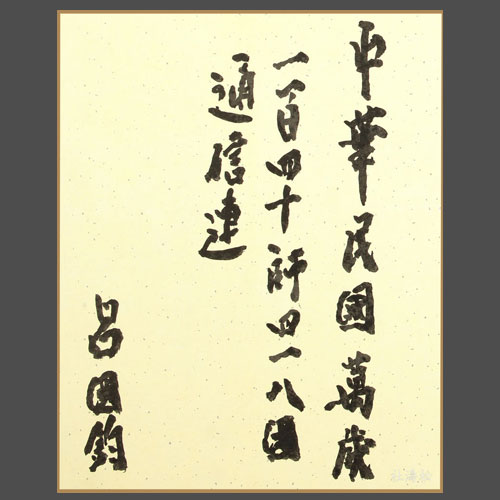 中華民國萬歲
一百四十師四一八團
通信連
呂國鈞